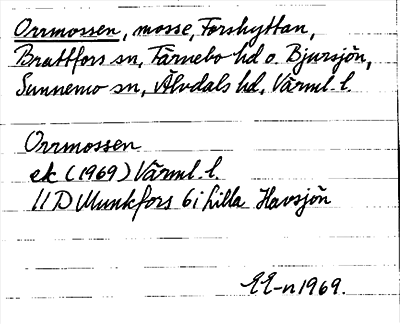 Orrmossen, mosse, Forshyttan,
Brattfors sn, Färnebo hd o. Bjursjön,
Sunnemo sn, Älvdals hd, Värml. l.
Orrmossen
ek (1969) Värml. l.
11D Munkfors 6i Lilla Havsjön
EE-n 1969.